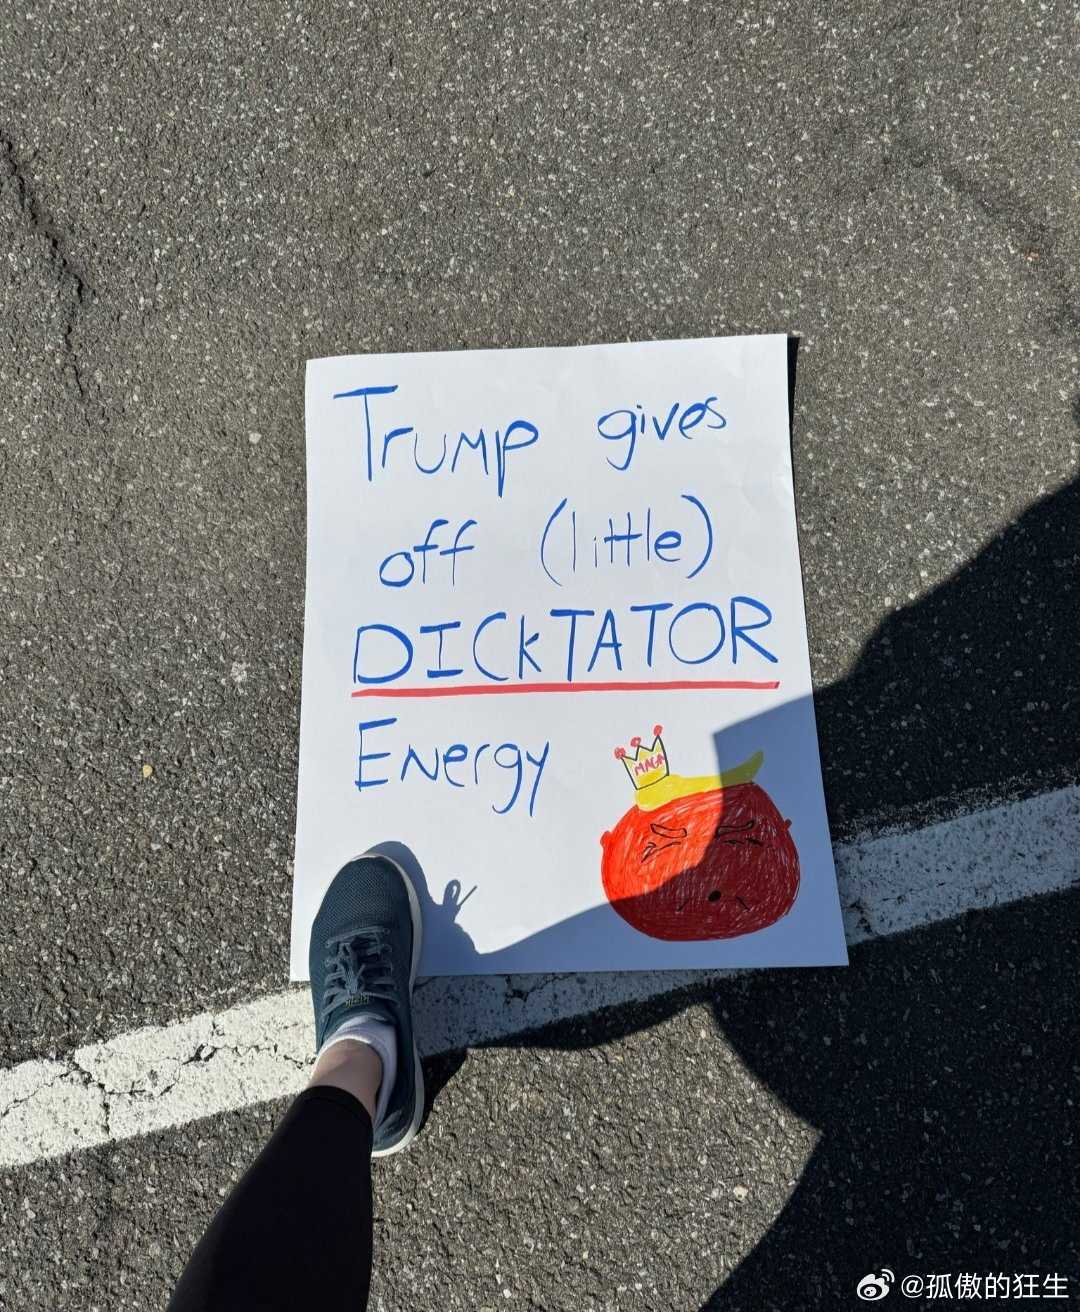 Trump gives
off (little)
DICkTATOR
Energy
MAGA
@孤傲的狂生